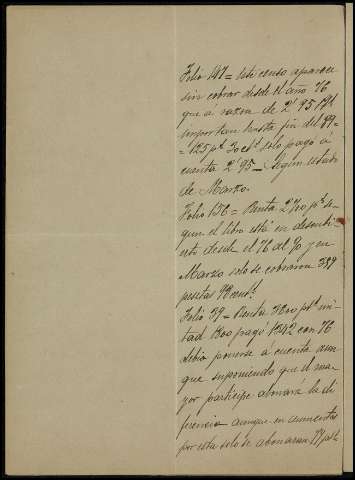 Folio 147 = Este censo aparece
sin cobrar desde el año 76
que á razon de 2'95 pts
importan hasta fin del 99
= 125 pts 30 cts solo pagó á
cuenta 2'95 = segun estado
de Marzo.
Folio 156 = Renta 2700 pts se-
gun el libro está en descubi-
erto desde el 76 al 90 y en
Marzo solo se cobraron 359
pesetas 98 cents.
Folio 39 = Renta 3600 pts mi-
tad 1800 pagó 1342 con 76
debió ponerse á cuenta aun
que suponiendo que el ma-
yor participe abonará la di
ferencia aunque en
por esta solo se abonaran 77 pts